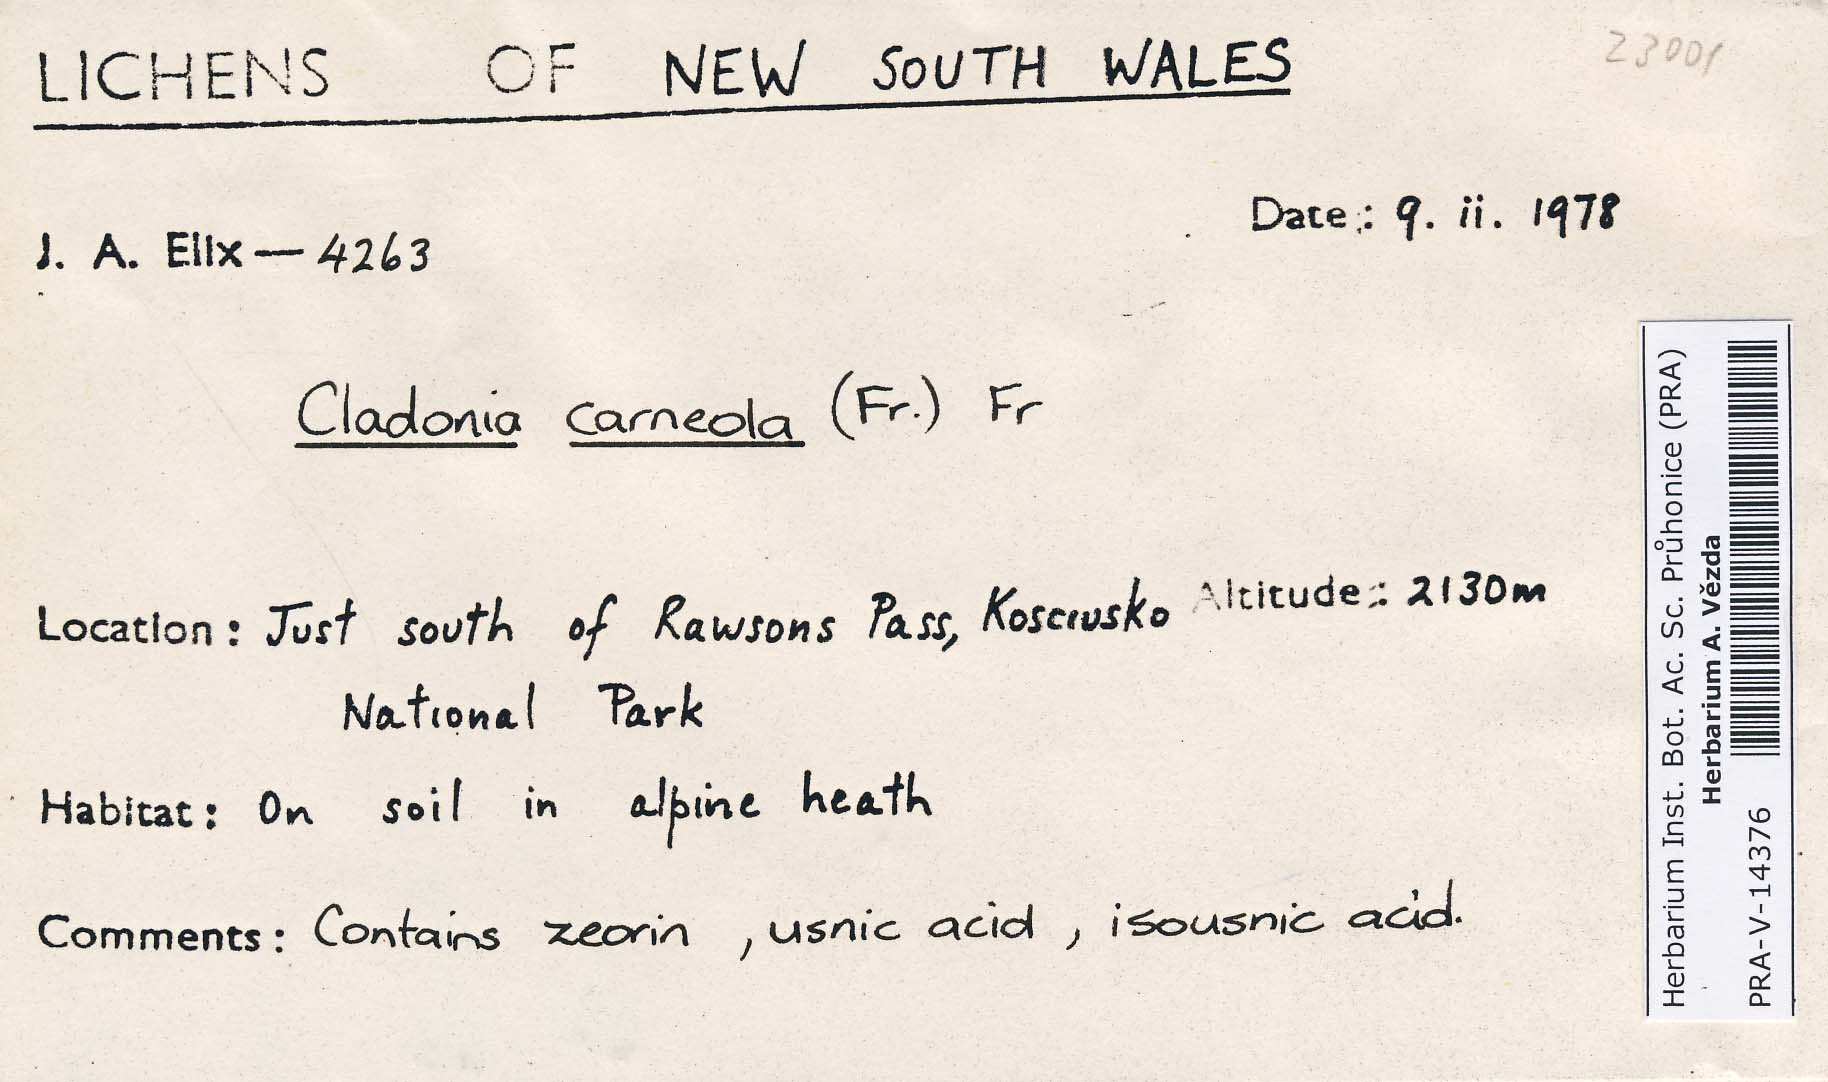 23001
LICHENS OF NEW SOUTH WALES
Date: 9. ii. 1978
J. A. Elix — 4263
Cladonia carneola (Fr.) Fr
Location: Just south of Rawsons Pass, Kosciusko Altitude: 2130m
National Park
Habitat: On soil in alpine heath
Comments: Contains zeorin, usnic acid, isousnic acid.
Herbarium Inst. Bot. Ac. Sc. Průhonice (PRA)
Herbarium A. Vězda
PRA-V-14376